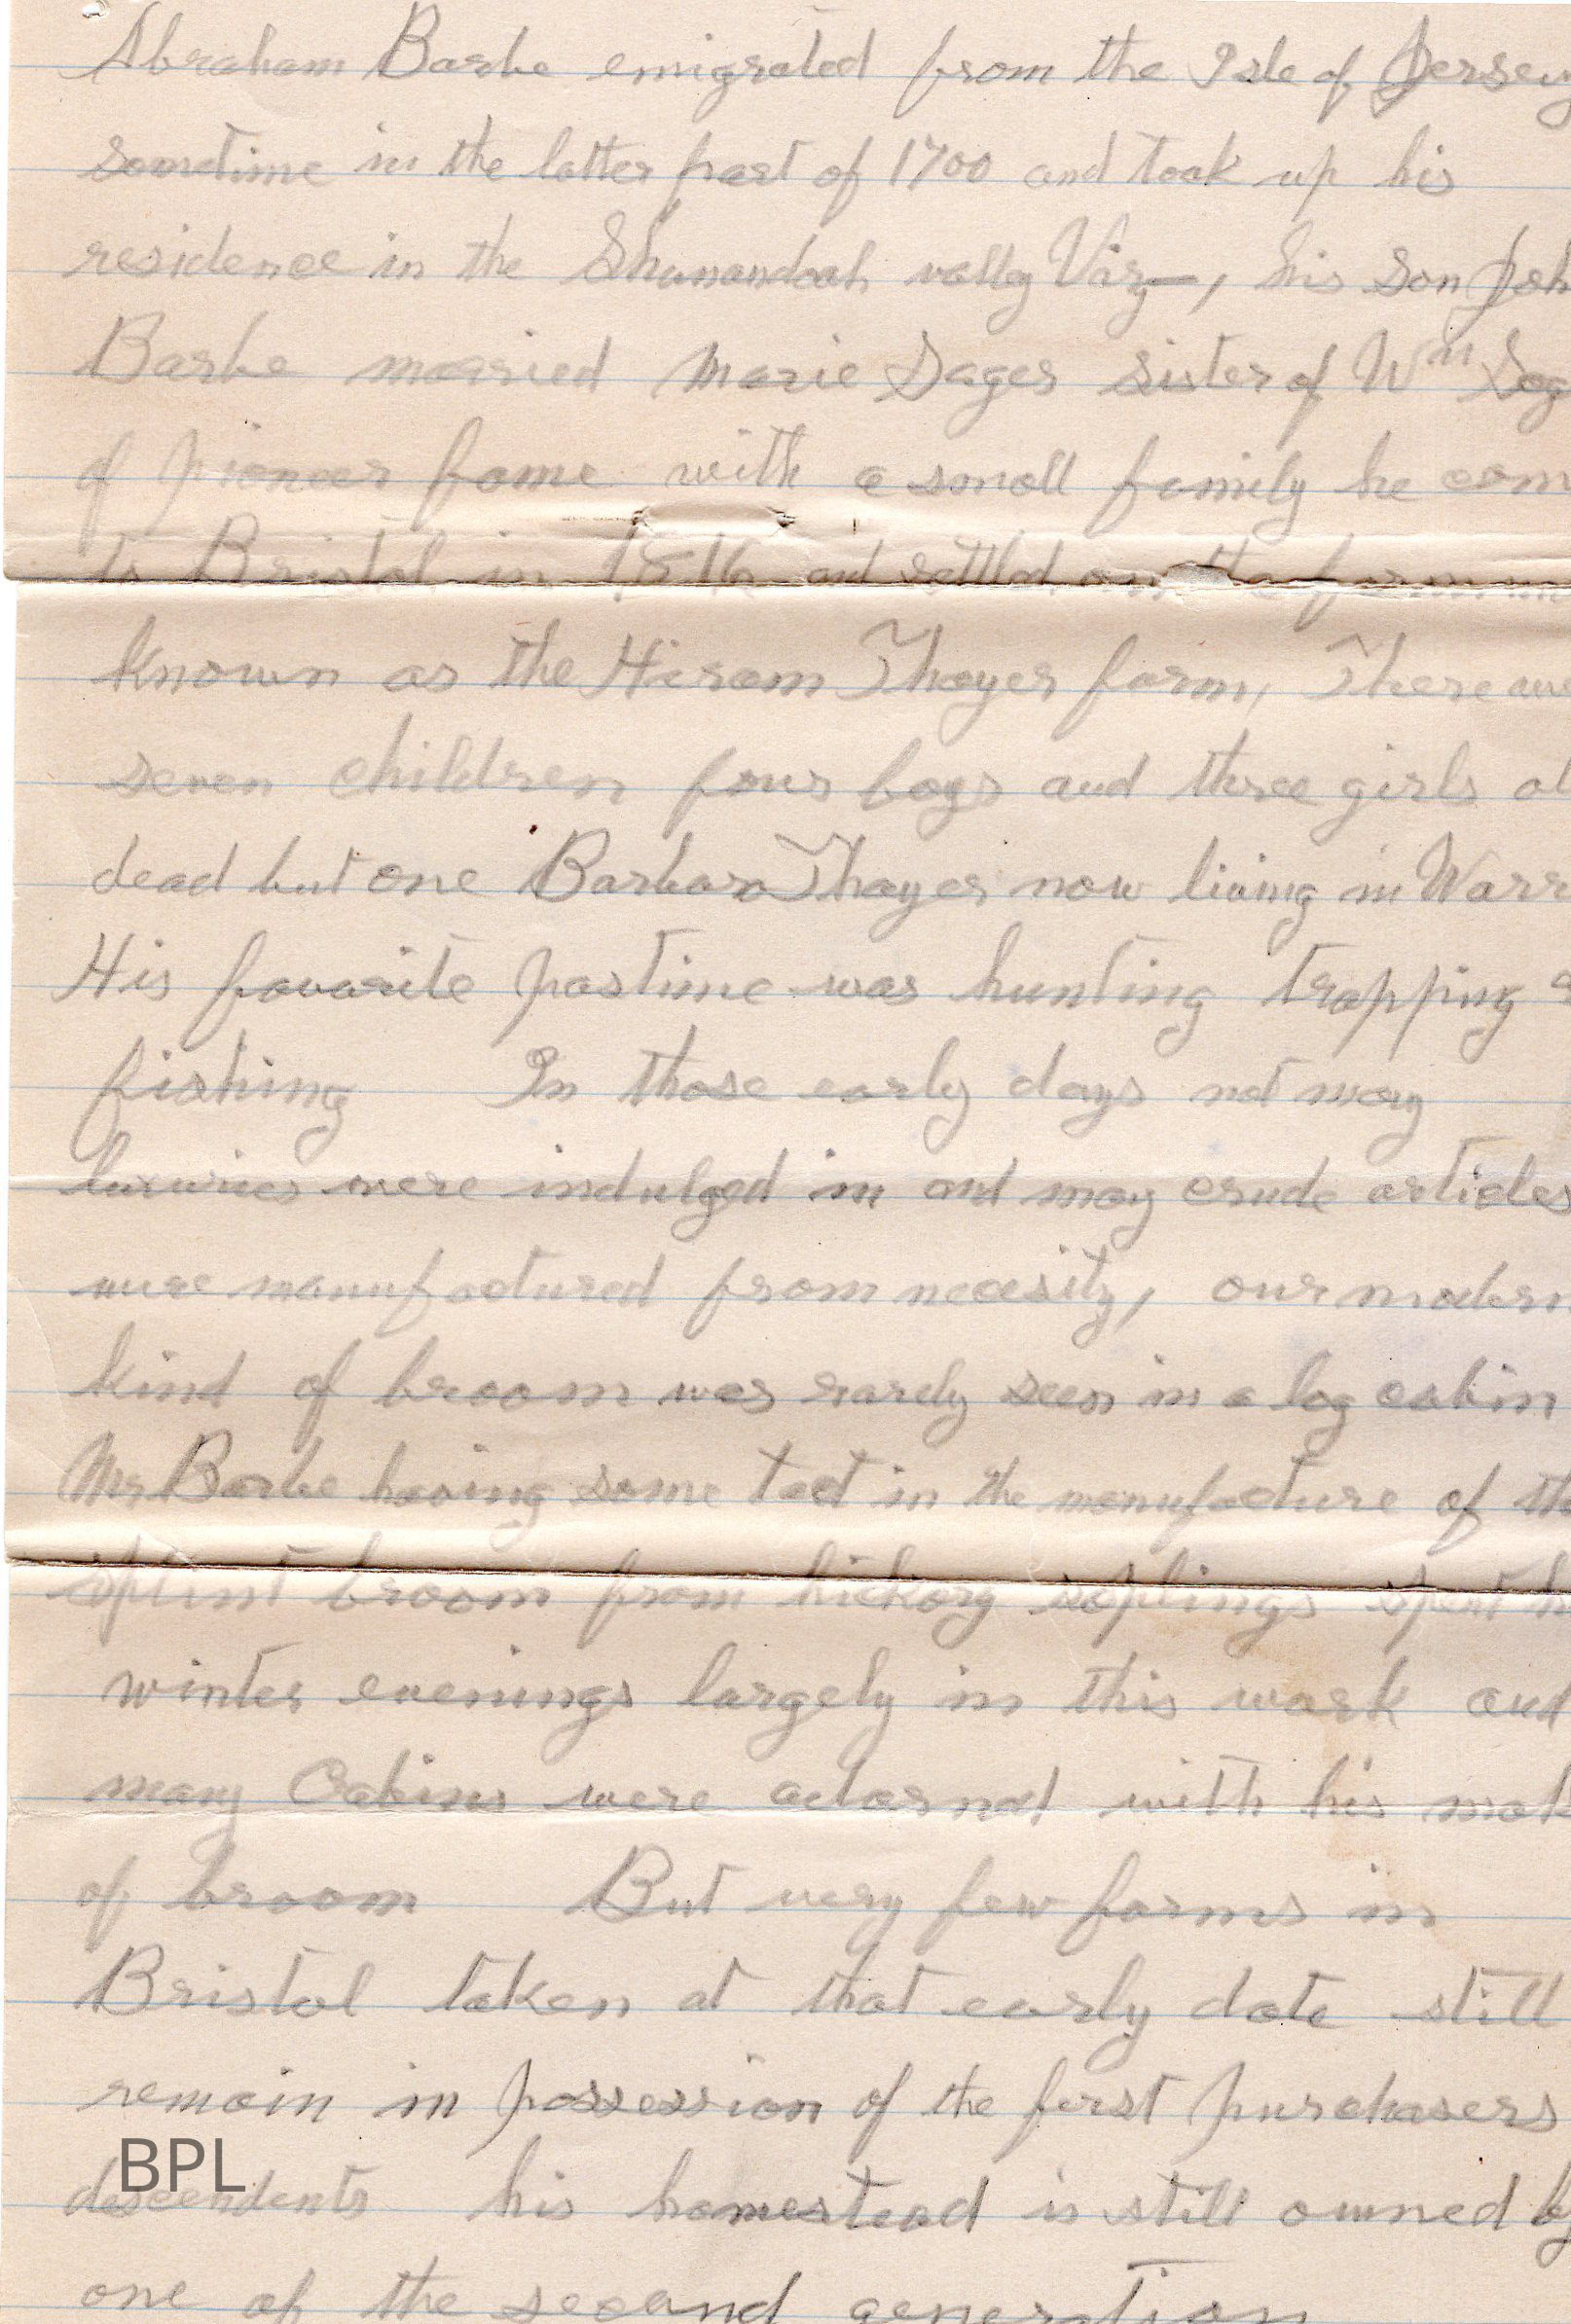 Abraham Barbe emigrated from the Isle of Jersey
sometime in the latter part of 1700 and took up his
residence in the Shunandoah vally Virg—, his son Joh
Barbe married Marie Sager sister of Wm Sag
of pioneer fame with a small family he com
to Bristol in 1816 and settled on the farm
known as the Hiram Thayer farm, There awe
seven children four boys and three girls al
dead but one Barbara Thayer now living in Warr
His favorite pastime was hunting trapping
fishing In those early days not many
luxuries were indulged in and many crude articles
were manufactured from necesity, our modern
kind of broom was rarely seen in a log cabin
Mr Barbe having some tact in the manufacture of the
splint broom from hickory saplings spent h
winter evenings largely in this work and
many Cabins were adornod with his mak
of broom But very few farms in
Bristol taken at that early date still
remain in possession of the first purchasers
descendents his homestead is still owned by
BPL
one of the second generation